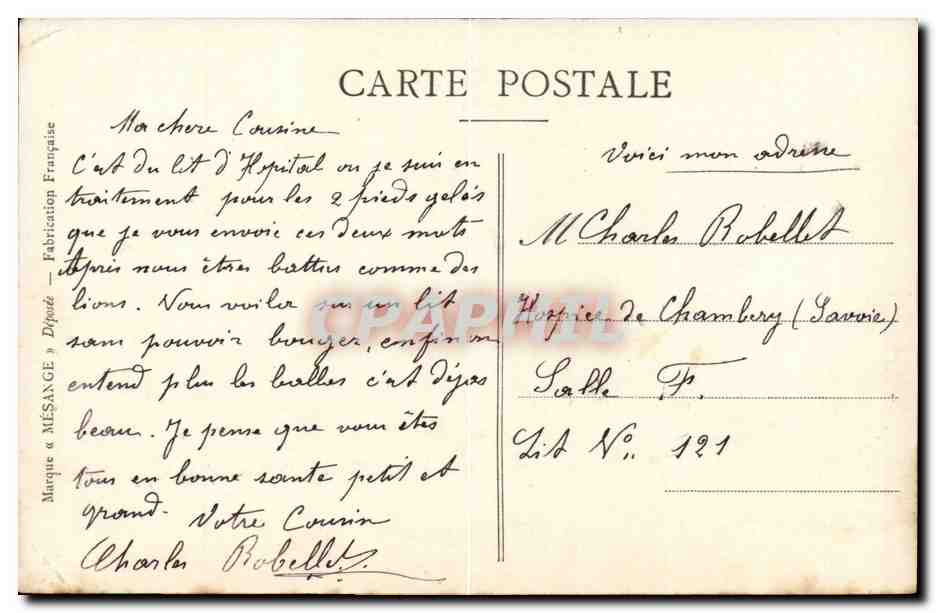 CARTE POSTALE
Marque « MÉSANGE » Déposée — Fabrication Française
Ma chere Cousine
C'est du lit d'Hopital ou je suis en
traitement pour les 2 pieds gelés
que je vous envoie ces deux mots
Après nous êtres battus comme des
lions. Nous voila sur un lit
sans pouvoir bouger, enfin on
entend plus les balles c'est déjas
beau. Je pense que vous êtes
tous en bonne sante petit et
grand. Votre Cousin
Charles Robellet
Voici mon adresse
M Charles Robellet
Hospice de Chambery (Savoie)
Salle F.
Lit No. 121
CPAPHIL